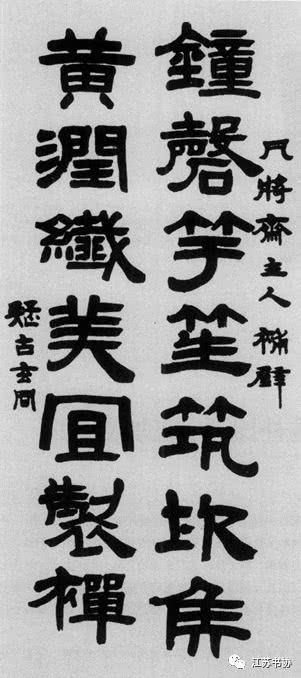 凡將齋主人補壁
鐘磬竽笙筑坎矦
黃潤纖美宜製襌
疑古玄同
江苏书协